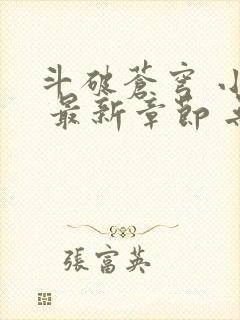 斗破蒼穹 小
最新章節
張富英